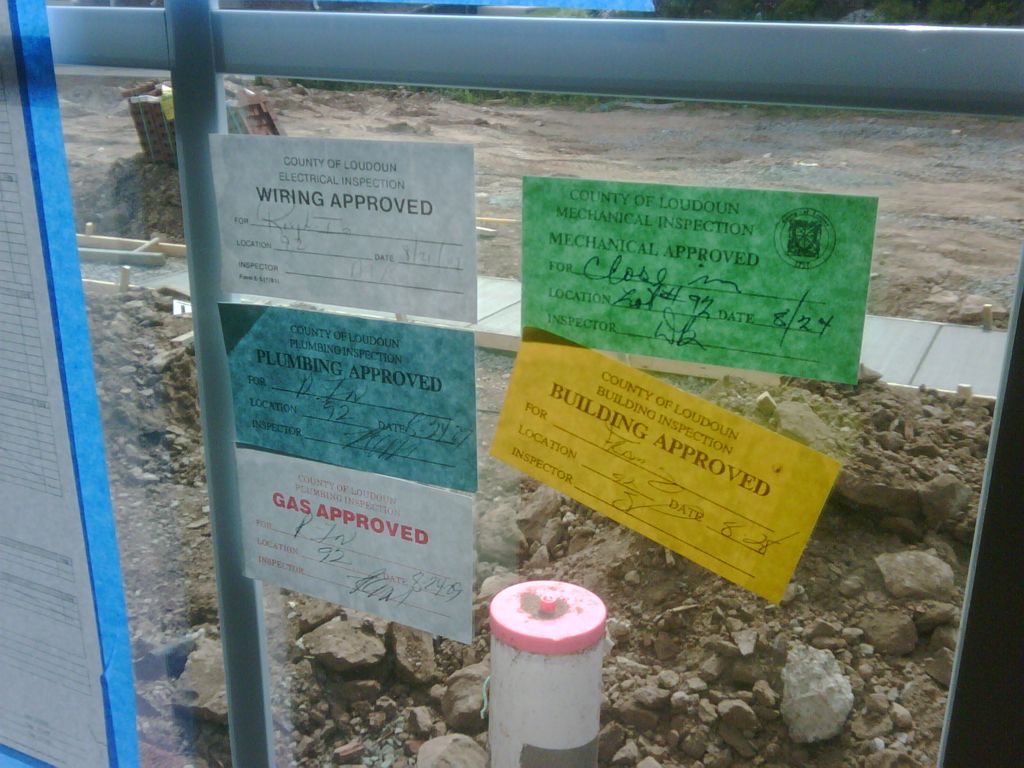 COUNTY OF LOUDOUN
ELECTRICAL INSPECTION
WIRING APPROVED
FOR
LOCATION 92 DATE 8/21/
INSPECTOR
COUNTY OF LOUDOUN
PLUMBING INSPECTION
PLUMBING APPROVED
FOR
LOCATION 92 DATE
INSPECTOR
COUNTY OF LOUDOUN
PLUMBING INSPECTION
GAS APPROVED
FOR
LOCATION 92 DATE 8-24-07
INSPECTOR
COUNTY OF LOUDOUN
MECHANICAL INSPECTION
MECHANICAL APPROVED
FOR Close in
LOCATION Lot # 92 DATE 8/24
INSPECTOR
COUNTY OF LOUDOUN
BUILDING INSPECTION
BUILDING APPROVED
FOR
LOCATION 92 DATE 8-28
INSPECTOR